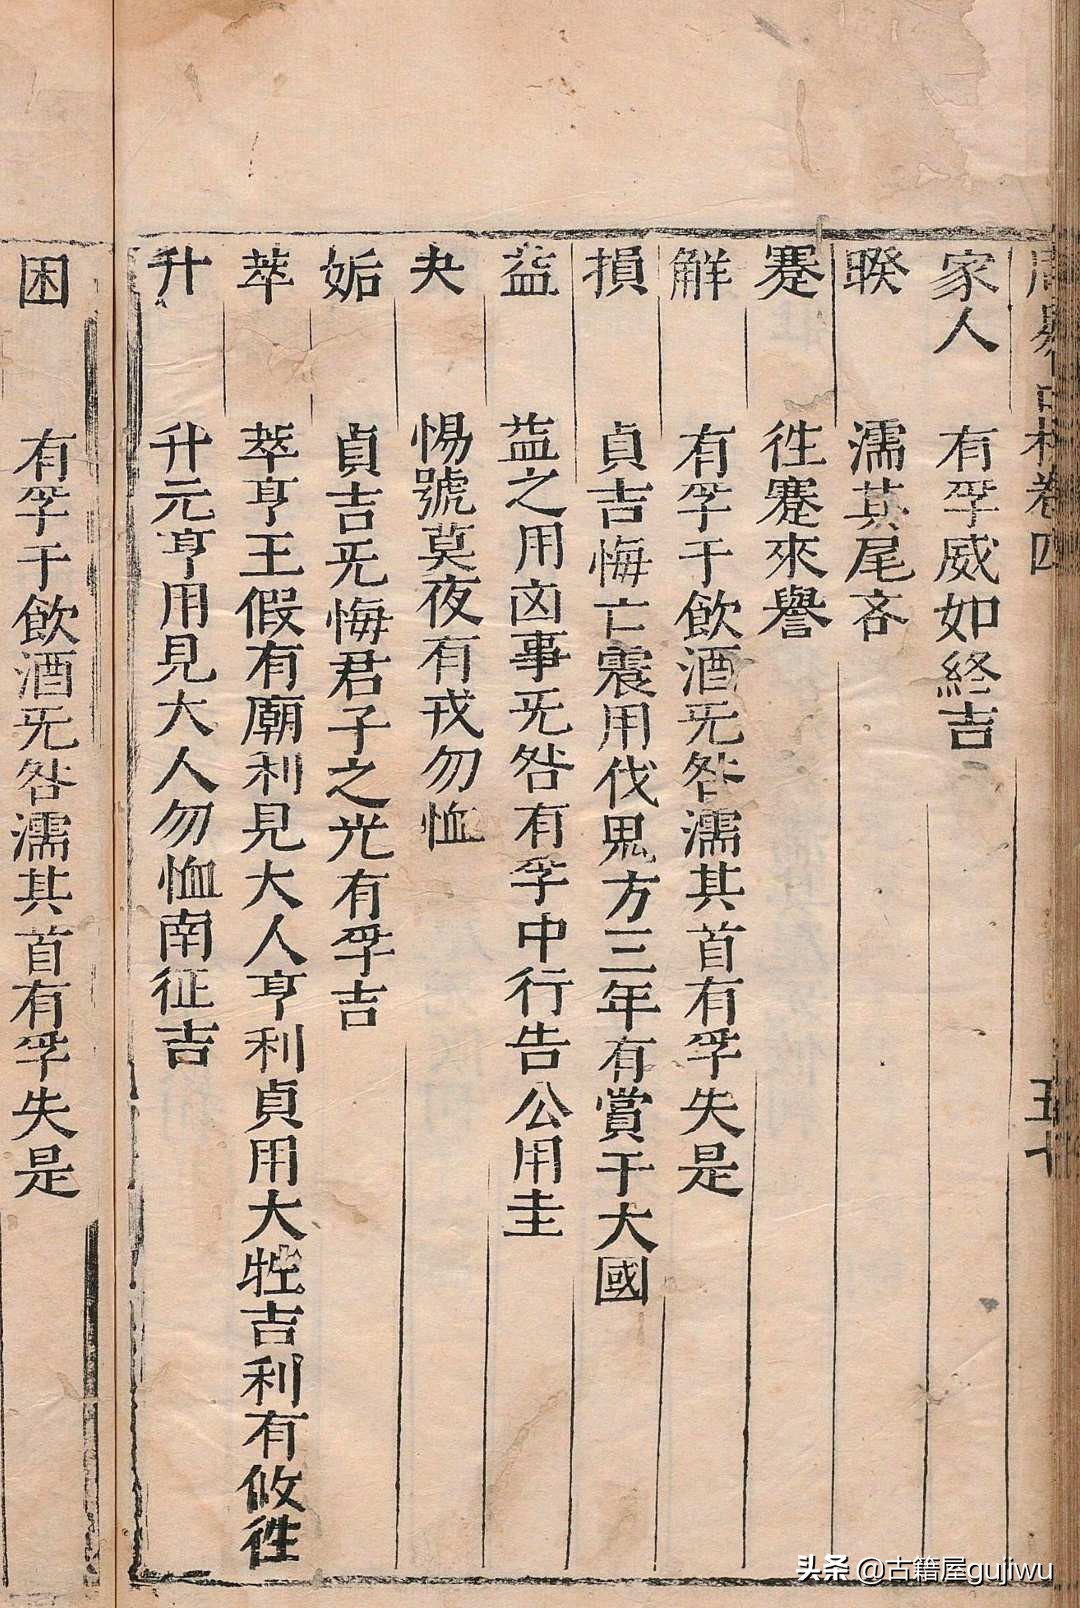 家人 有孚威如終吉
睽 濡其尾吝
蹇 徃蹇來譽
解 有孚于飲酒无咎濡其首有孚失是
損 貞吉悔亡震用伐鬼方三年有賞于大國
益 益之用凶事无咎有孚中行告公用圭
夬 惕號莫夜有戎勿恤
姤 貞吉无悔君子之光有孚吉
萃 萃亨王假有廟利見大人亨利貞用大牲吉利有攸徃
升 升元亨用見大人勿恤南征吉
困 有孚于飲酒无咎濡其首有孚失是
头条 @古籍屋gujiwu